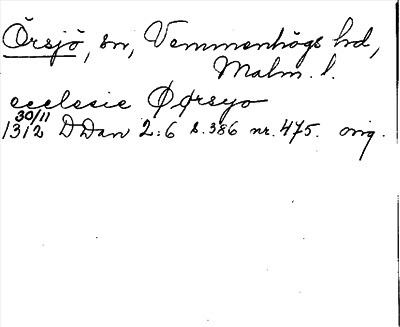 Örsjö, sn, Vemmenhögs hd,
Malm. l.
ecclesie Øørsyo
30/11
1312 DDan 2:6 s. 386 nr. 475. orig.